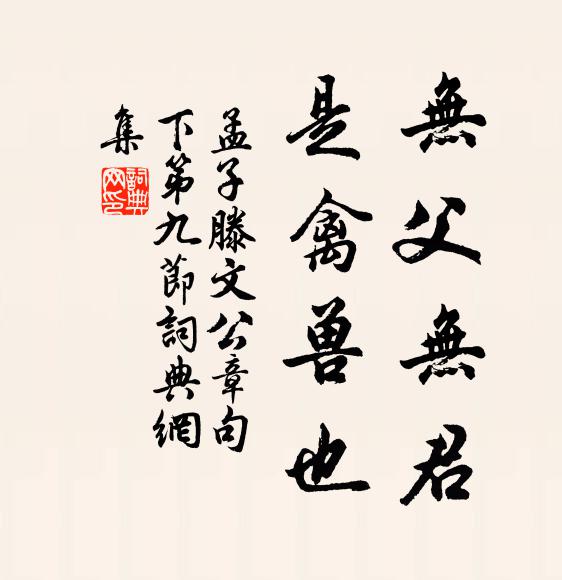 無父無君
是禽兽也
孟子滕文公章句
下第九節詞典網
集
詞典
网印